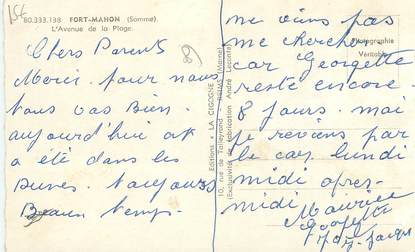 15€
80.333.138 FORT-MAHON (Somme).
L'Avenue de la Plage.
Chers Parents
Merci. pour nous
tous vas bien.
aujourd'hui ont
a été dans les
Dunes. toujours
Beaux temps.
Editions LA CIGOGNE
10, rue de Talleyrand REIMS (Marne)
(Exclusivité de fabrication André Leconte)
Photographie
Véritable
ne viens pas
me cherché
car Georgette
reste encore.
8 jours. mai
je reviens par
le car lundi
midi apres-
midi
Maurice